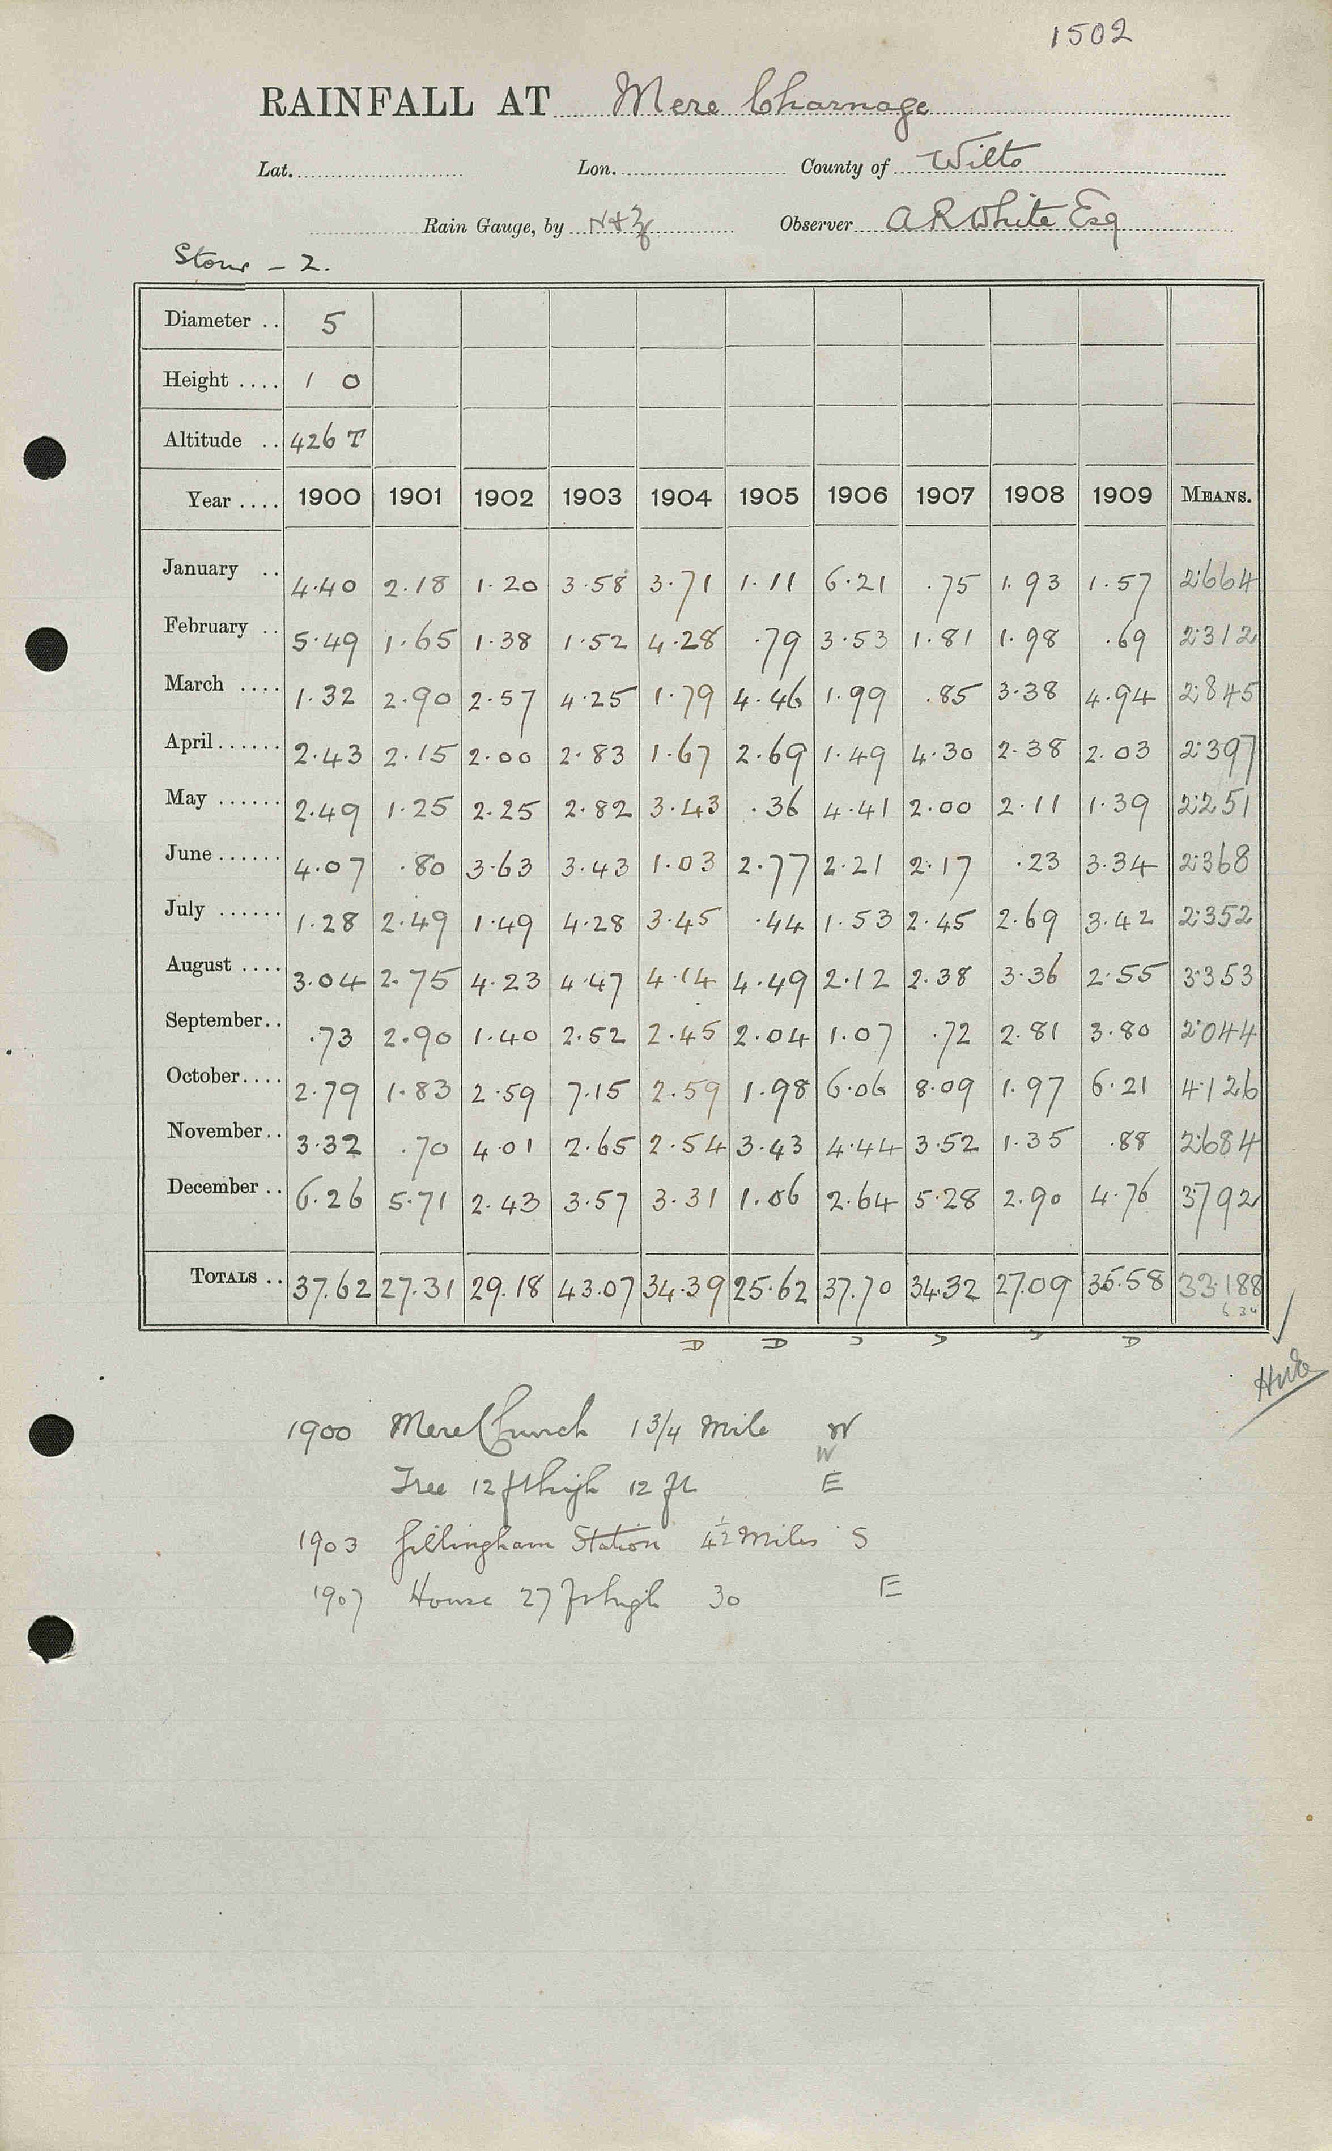 1502
RAINFALL AT Mere Charnage
Lat. Lon. County of Wilts
Rain Gauge, by N+Z Observer A R White Esq
Stour - 2.
Diameter .. 5
Height .... 1 0
Altitude .. 426 T
Year .... 1900 1901 1902 1903 1904 1905 1906 1907 1908 1909 MEANS.
January .. 4.40 2.18 1.20 3.58 3.71 1.11 6.21 .75 1.93 1.57 2.664
February .. 5.49 1.65 1.38 1.52 4.28 .79 3.53 1.81 1.98 .69 2.312
March .... 1.32 2.90 2.57 4.25 1.79 4.46 1.99 .85 3.38 4.94 2.845
April...... 2.43 2.15 2.00 2.83 1.67 2.69 1.49 4.30 2.38 2.03 2.397
May ...... 2.49 1.25 2.25 2.82 3.43 .36 4.41 2.00 2.11 1.39 2.251
June...... 4.07 .80 3.63 3.43 1.03 2.77 2.21 2.17 .23 3.34 2.368
July ...... 1.28 2.49 1.49 4.28 3.45 .44 1.53 2.45 2.69 3.42 2.352
August .... 3.04 2.75 4.23 4.47 4.14 4.49 2.12 2.38 3.36 2.55 3.353
September.. .73 2.90 1.40 2.52 2.45 2.04 1.07 .72 2.81 3.80 2.044
October.... 2.79 1.83 2.59 7.15 2.59 1.98 6.06 8.09 1.97 6.21 4.126
November.. 3.32 .70 4.01 2.65 2.54 3.43 4.44 3.52 1.35 .88 2.684
December .. 6.26 5.71 2.43 3.57 3.31 1.06 2.64 5.28 2.90 4.76 3.792
TOTALS .. 37.62 27.31 29.18 43.07 34.39 25.62 37.70 34.32 27.09 35.58 33.188
D D D D D D
1900 Mere Church 1 3/4 Mile W
W
Tree 12 ft high 12 ft E
1903 Gillingham Station 4½ Miles S
1907 House 27 ft high 30 E